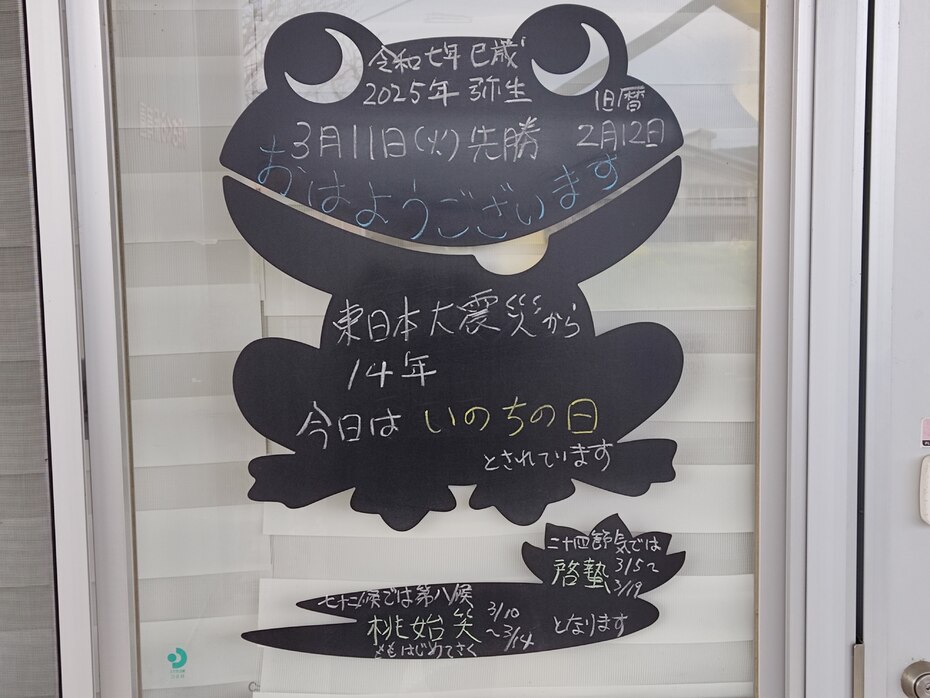 令和七年 巳歳
2025年 弥生
旧暦
3月11日(火)先勝 2月12日
おはようございます
東日本大震災から
14年
今日は いのちの日
とされています
二十四節気では
啓蟄 3/5〜
3/19
七十二候では第八候
桃始笑 3/10
〜3/14 となります
ももはじめてさく